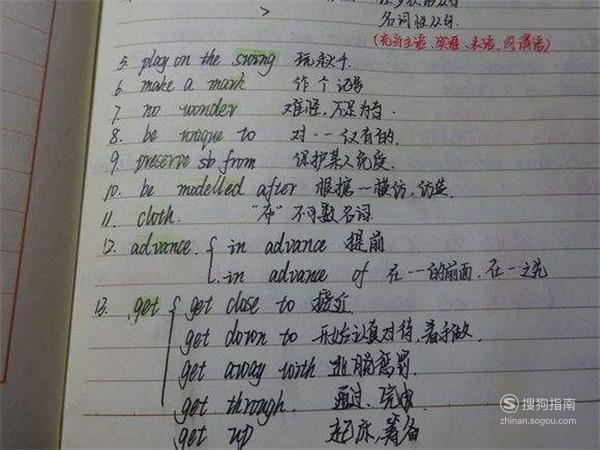 名词性从句.
(充当主语、宾语、表语、同谓语)
5. play on the swing 玩秋千.
6. make a mark 作个记号
7. no wonder 难怪, 不足为奇.
8. be unique to 对…仅有的.
9. preserve sb from 保护某人免受.
10. be modelled after 根据…模仿, 仿造
11. cloth. "布" 不可数名词
12. advance. { in advance 提前
in advance of 在…的前面, 在…之先
13. get { get close to 接近.
get down to 开始认真对待, 着手做.
get away with 逃脱惩罚.
get through. 通过、完成
get up 起床,
搜狗指南
zhinan.sogou.com